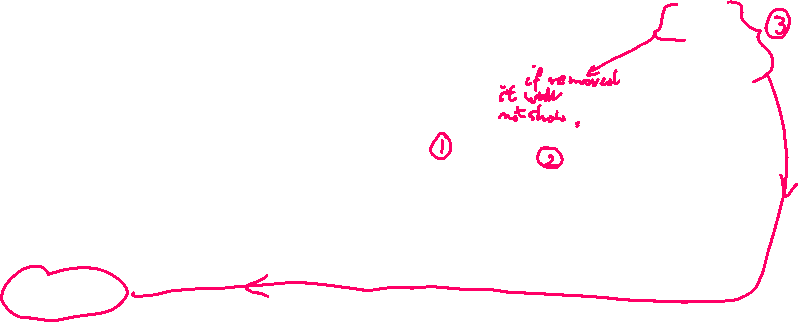 ③
if removed
it will
not show.
①
②